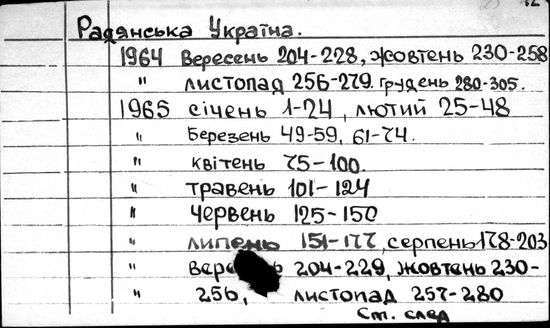 12
Радянська Україна.
1964 Вересень 204-228, жовтень 230-258
" листопад 256-279. грудень 280-305.
1965 січень 1-24, лютий 25-48
" Березень 49-59, 61-74.
" квітень 75-100.
" травень 101-124
" червень 125-150
" липень 151-177, серпень 178-203
" 204-229, жовтень 230-
" 256, листопад 257-280
Ст. след